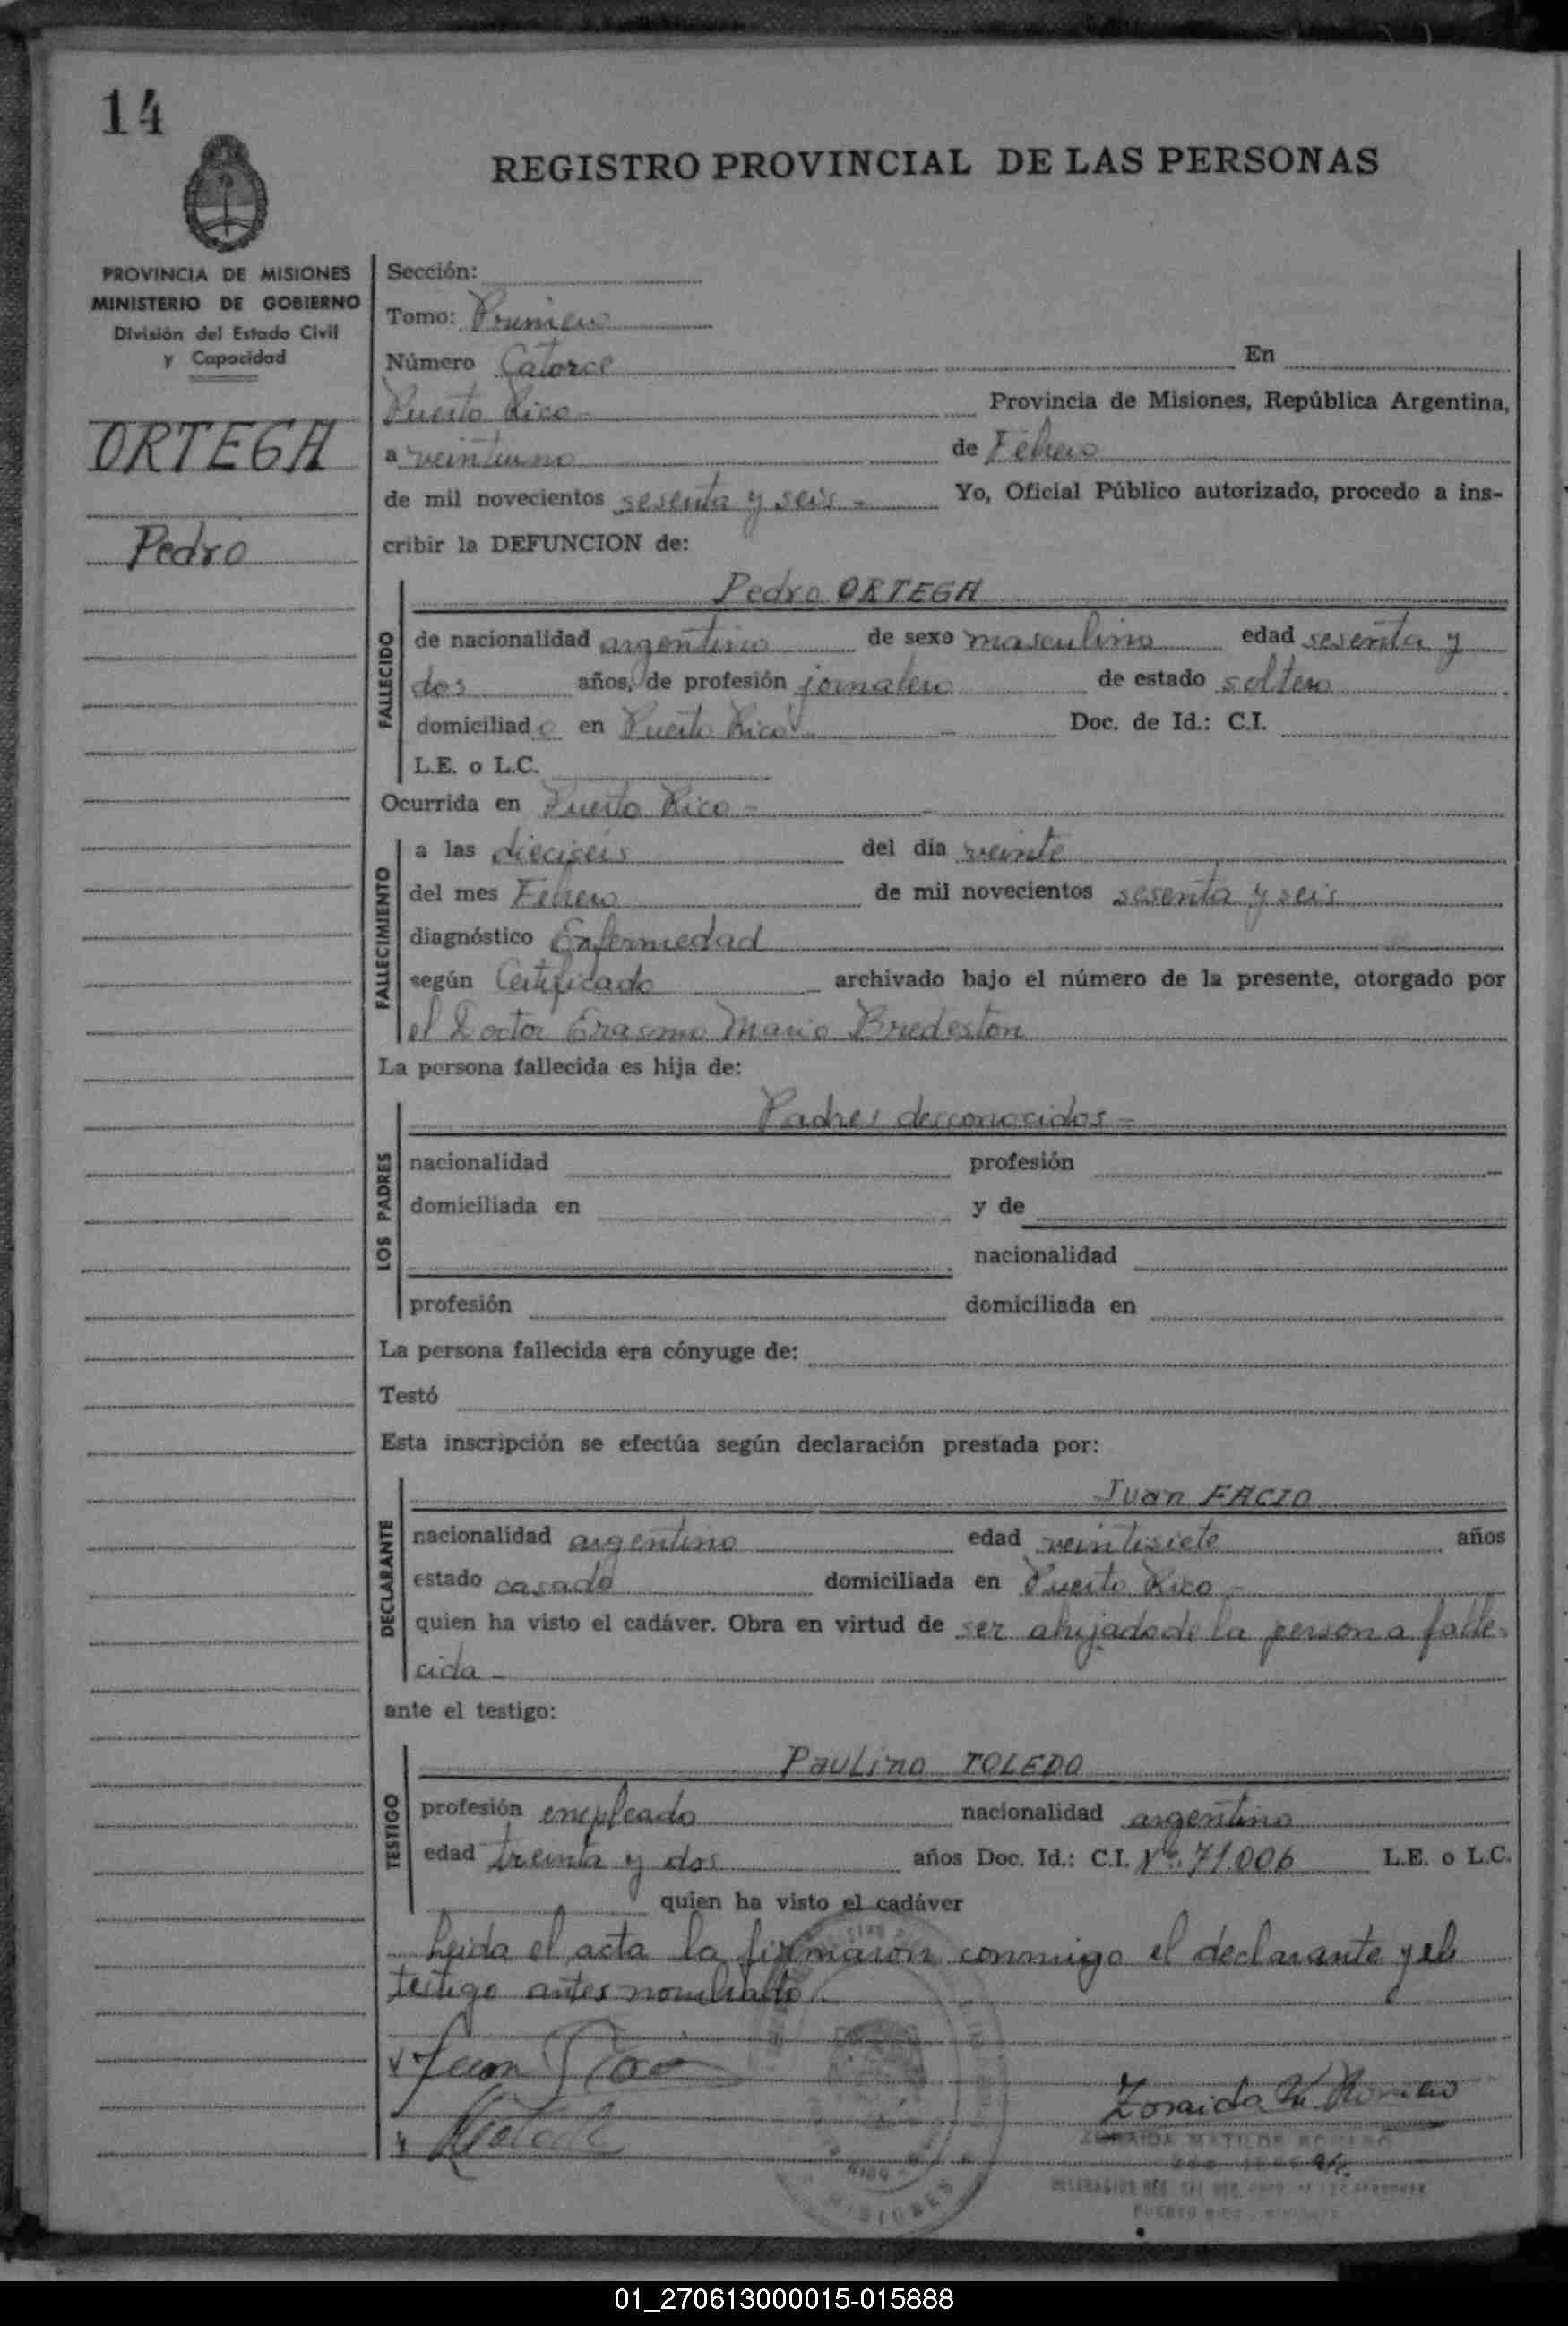 14
REGISTRO PROVINCIAL DE LAS PERSONAS
PROVINCIA DE MISIONES
MINISTERIO DE GOBIERNO
División del Estado Civil
y Capacidad
ORTEGA
Pedro
Sección:
Tomo: Primero
Número Catorce En
Puerto Rico - Provincia de Misiones, República Argentina,
a veintiuno de Febrero
de mil novecientos sesenta y seis - Yo, Oficial Público autorizado, procedo a ins-
cribir la DEFUNCION de:
FALLECIDO
Pedro ORTEGA
de nacionalidad argentino de sexo masculino edad sesenta y
dos años, de profesión jornalero de estado soltero
domiciliado en Puerto Rico Doc. de Id.: C.I.
L.E. o L.C.
Ocurrida en Puerto Rico -
FALLECIMIENTO
a las dieciseis del día veinte
del mes Febrero de mil novecientos sesenta y seis
diagnóstico Enfermedad
según Certificado archivado bajo el número de la presente, otorgado por
el Doctor Erasmo Mario Bredeston
La persona fallecida es hija de:
LOS PADRES
Padres desconocidos -
nacionalidad profesión
domiciliada en y de
nacionalidad
profesión domiciliada en
La persona fallecida era cónyuge de:
Testó
Esta inscripción se efectúa según declaración prestada por:
DECLARANTE
Juan FACIO
nacionalidad argentino edad veintisiete años
estado casado domiciliada en Puerto Rico -
quien ha visto el cadáver. Obra en virtud de ser ahijado de la persona falle-
cida -
ante el testigo:
TESTIGO
Paulino TOLEDO
profesión empleado nacionalidad argentino
edad treinta y dos años Doc. Id.: C.I. Nº. 71.006 L.E. o L.C.
quien ha visto el cadáver
Leida el acta la firmaron conmigo el declarante y el
testigo antes nombrado.
Juan
Zoraida M. Romero
ZORAIDA MATILDE ROMERO
PUERTO RICO - MISIONES
MISIONES
01_270613000015-015888